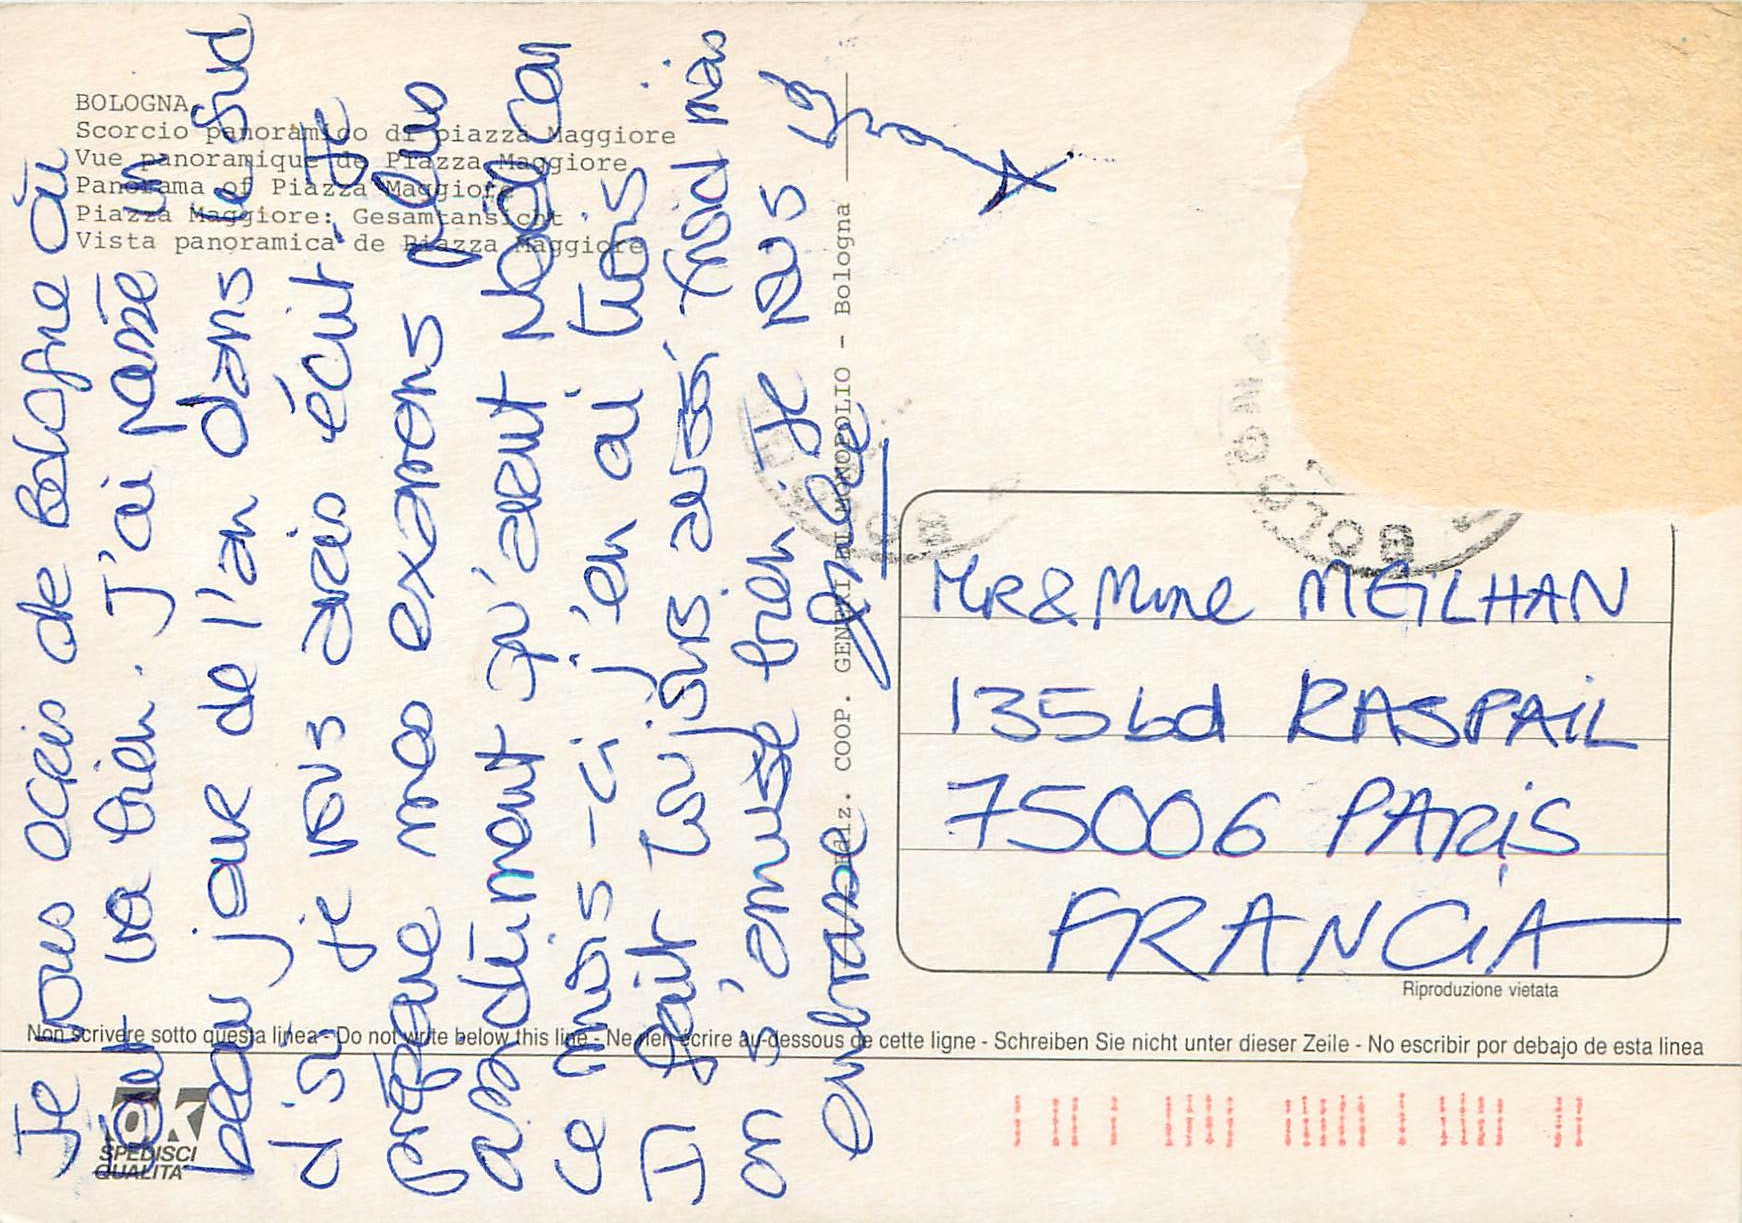 BOLOGNA
Scorcio panoramico di piazza Maggiore
Vue panoramique de Piazza Maggiore
Panorama of Piazza Maggiore
Piazza Maggiore: Gesamtansicht
Vista panoramica de Piazza Maggiore
Je vous écris de Bologne où
tout va bien. J'ai passé un
beau jour de l'an dans le sud
d'où je vous avais écrit. Je
prépare mes examens plus
assidûment qu'avant Noël car
ce mois-ci j'en ai trois
Il fait toujours aussi froid mais
on s'amuse bien. Je vous
embrasse
Ediz. COOP. GENERI DI MONOPOLIO - Bologna
BOLOGNA
BOLOGNA
Mr & Mme MEILHAN
135 bd RASPAIL
75006 PARiS
FRANCiA
Riproduzione vietata
Non scrivere sotto questa linea - Do not write below this line - Ne rien écrire au-dessous de cette ligne - Schreiben Sie nicht unter dieser Zeile - No escribir por debajo de esta linea
OK
SPEDISCI
QUALITA'